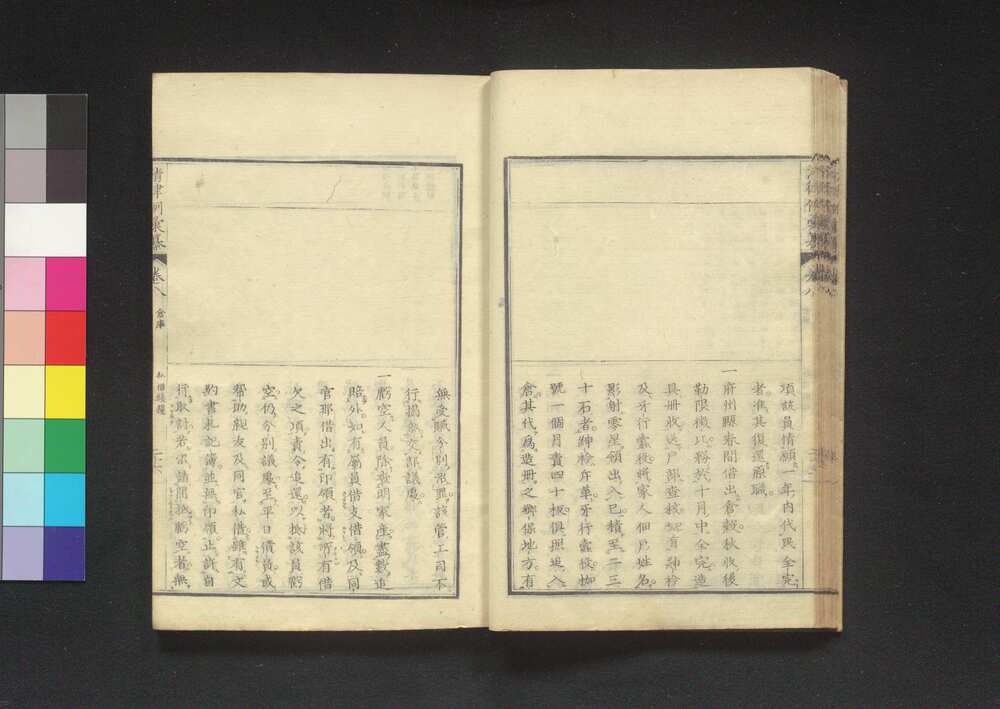 項該員情願一年內代民全完
者准其復還原職
一府州縣春間借出倉穀秋收後
勒限徵比務於十月中全完造
具冊收送戶部查核如有紳衿
及牙行蠹役將家人佃戶姓名
影射零星領出入己積至二三
十石者紳衿斥革牙行蠹役枷
號一個月責四十板俱照追入
倉其代為造冊之鄉保地方有
無受贓分別治罪該管上司不
行揭參交部議處
一虧空人員除查明家產盡數追
賠外如有屬員借支借領及同
官那借出有印領者將所有借
欠之項責令追還以抵該員虧
空仍分別議處至平日債負或
幫助親友及同官私借雖有文
約書札記簿並無印領止許自
行取討若冒請開抵虧空者無
清律例彙纂
卷八
倉庫
私借錢糧